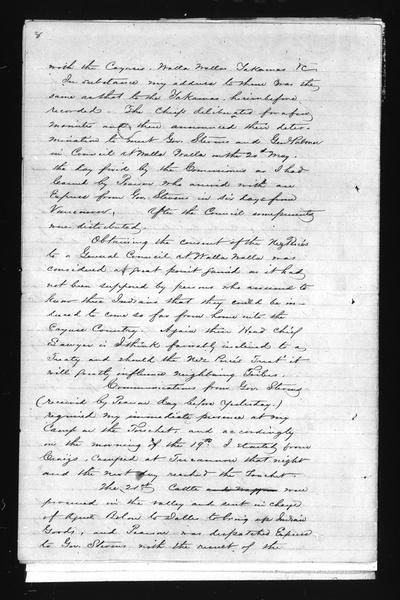 8
with the Cayuse, Walla Wallas Yakamas &c
In substance my address to them was the
same as that to the Yakamas, hereinbefore
recorded. The Chiefs deliberated for a few
minutes and then announced their deter-
mination to meet Gov. Stevens and Genl Palmer
in Council at Walla Walla on the 20th May.
the day fixed by the Commissioners as I had
learned by Pearson who arrived with an
Express from Gov. Stevens in six days from
Vancouver. After the Council some presents
were distributed.
Obtaining the consent of the Nez Perces
to a General Council at Walla Walla was
considered a great point gained as it had
not been supposed by persons who assumed to
know these Indians that they could be in-
duced to come so far from home into the
Cayuse Country. Again their Head Chief
Lawyer is I think favorably inclined to a
Treaty and should the Nez Perces Treat it
will greatly influence neighboring Tribes.
Communications from Gov. Stevens
(received by Pearson day before yesterday,)
required my immediate presence at my
Camp on the Touchet, and accordingly
on the morning of the 19th I started from
Craigs, Camped at Tucannon that night
and the next day reached the Touchet.
The 21st Cattle were
procured in the valley and sent in charge
of Agent Bolon to Dalles to bring up Indian
Goods, and Pearson was despatched Express
to Gov. Stevens with the result of the